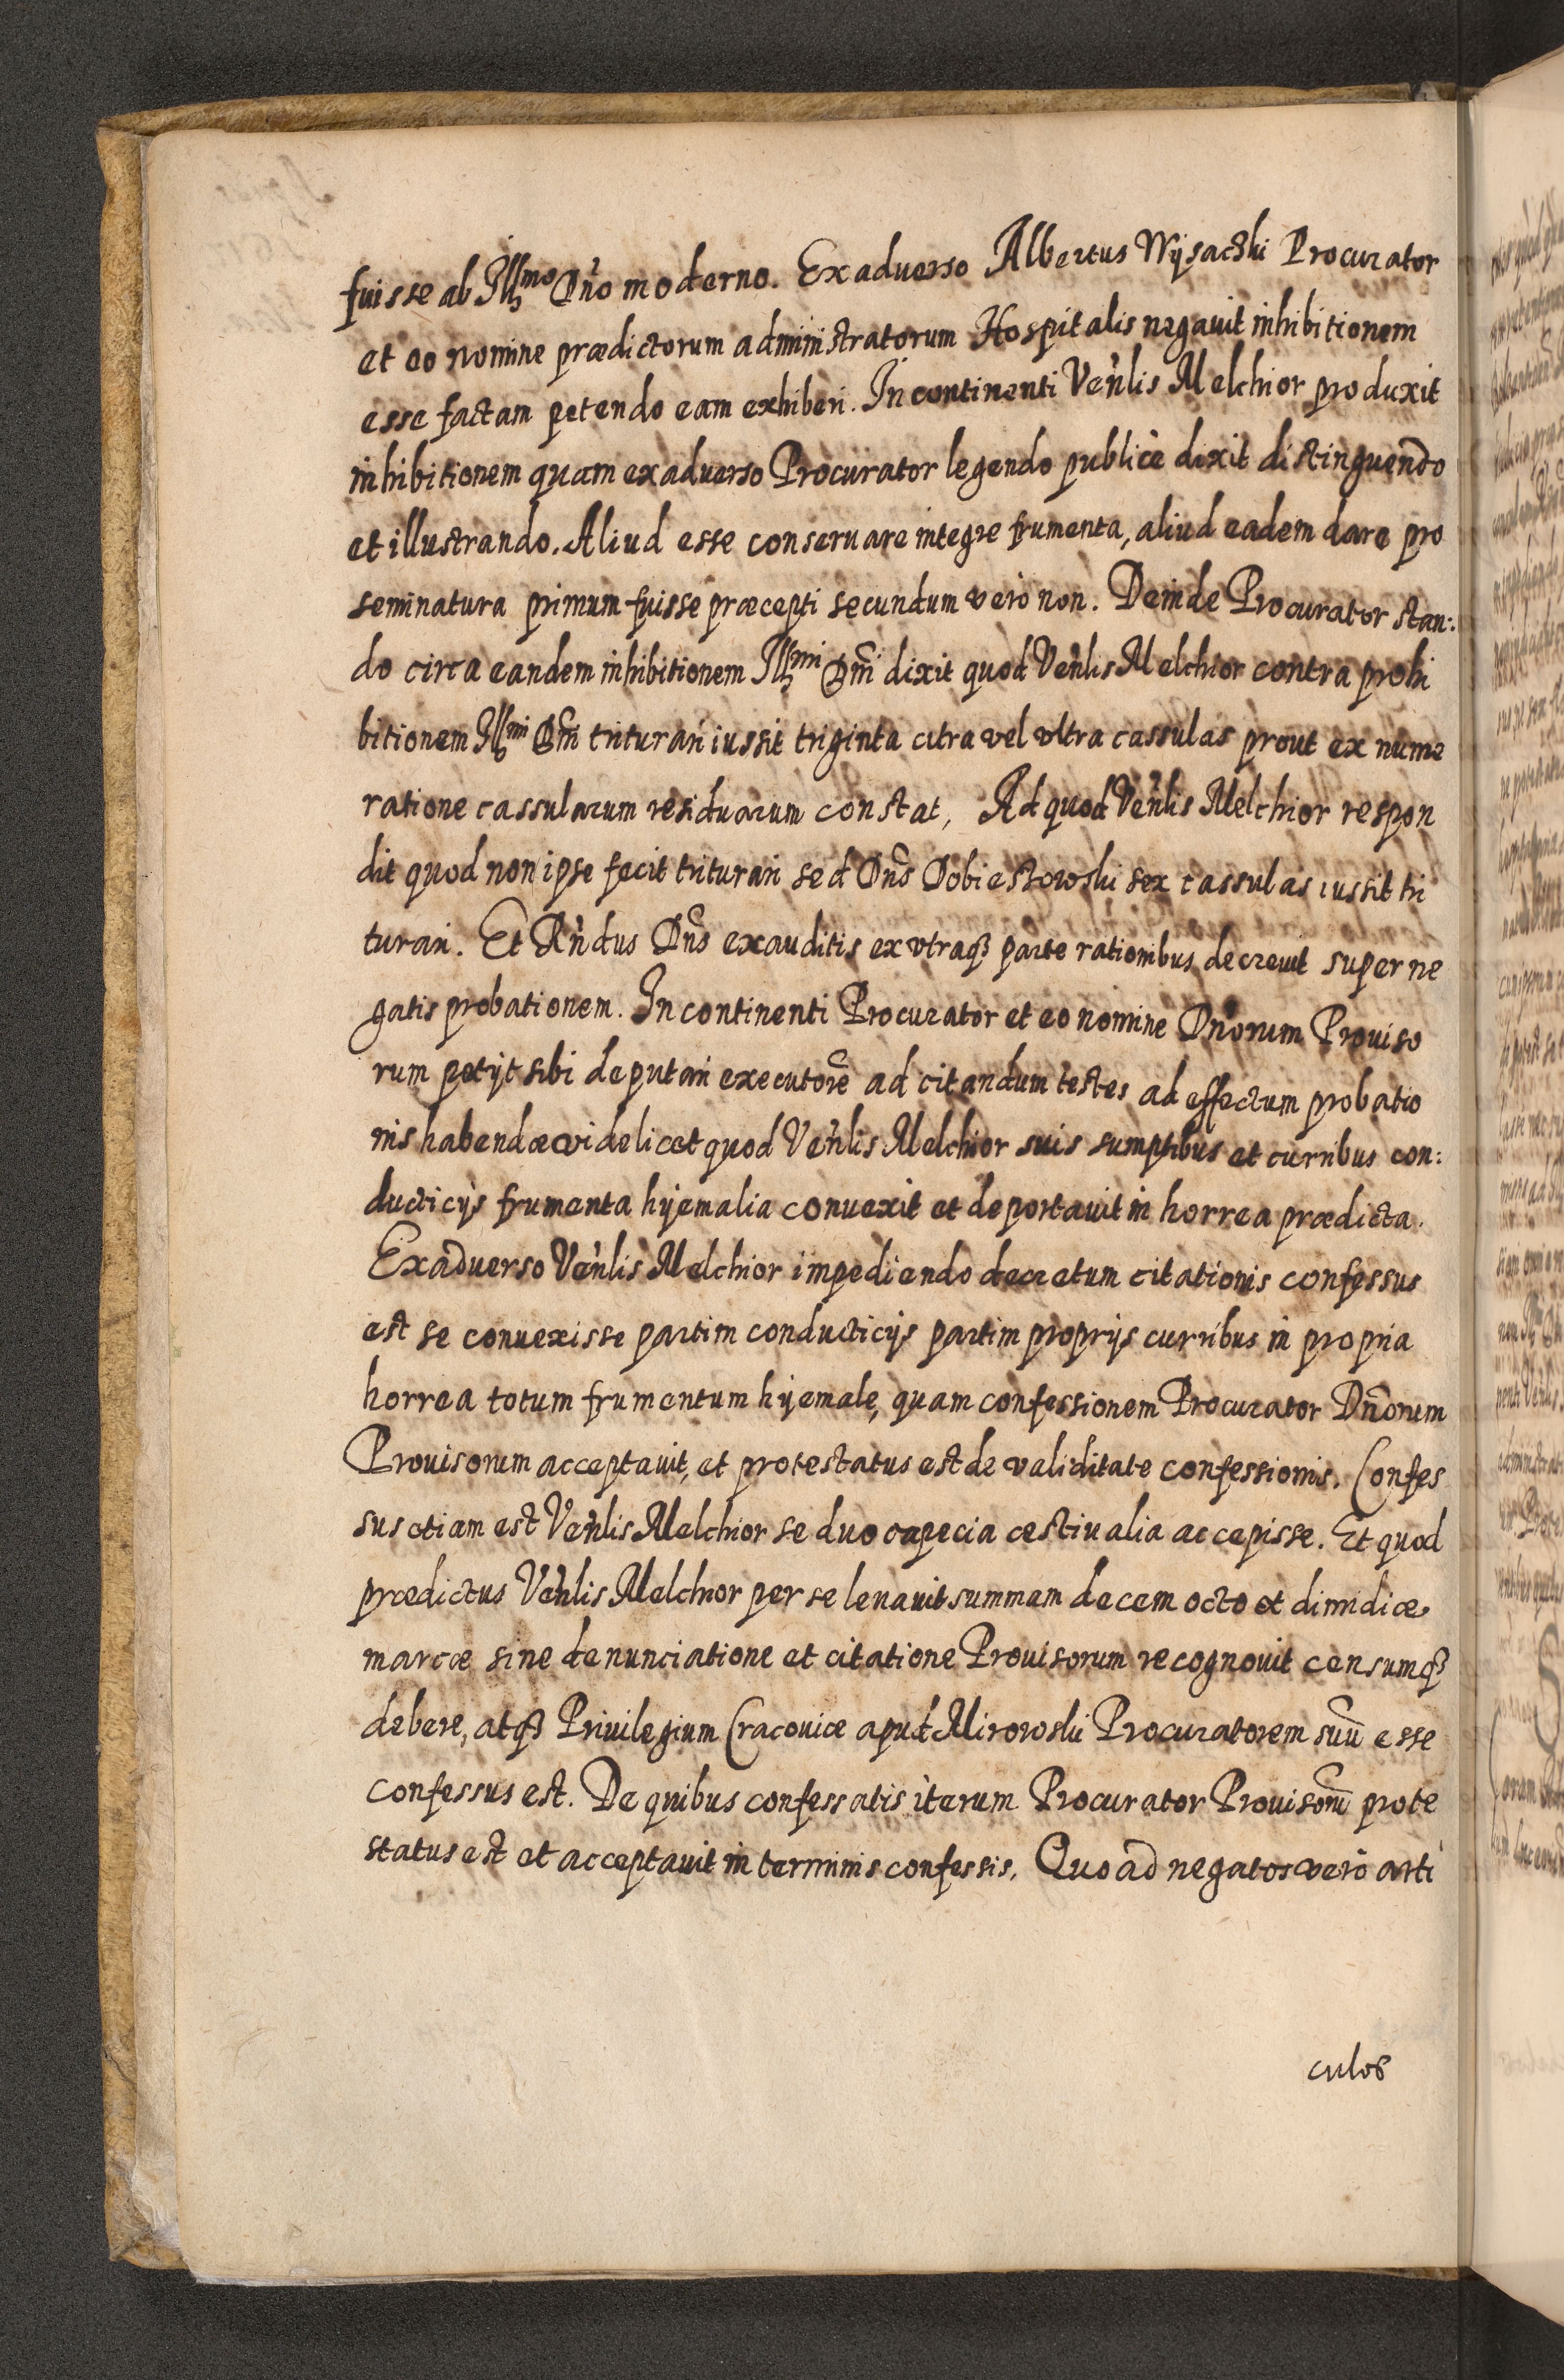 fuisse ab Illmo Dno moderno. Ex aduerso Albertus Wÿsactki Procurator
et eo nomine prædictorum administratorum Hospitalis negauit inhibitionem
esse factam petendo eam exhiberi. In continenti Venlis Melchior produxit
inhibitionem quam ex aduerso Procurator legendo publicè dixit distinguendo
et illustrando. Aliud esse conseruare integre frumenta, aliud eadem dare pro
seminatura primum fuisse præcepti secundum verò non. Deinde Procurator stan:
do circa eandem inhibitionem Illmi Dni dixit quod Venlis Melchior contra prohi
bitionem Illmi Dni triturari iussit triginta citra vel vltra cassulas prout ex nume
ratione cassularum residuarum constat, Ad quod Venlis Melchior respon
dit quod non ipse fecit triturari sed Dns Dobiestowski sex cassulas iussit tri
turari. Et Rndus Dns exauditis ex vtraq3 parte rationibus decreuit super ne
gatis probationem. In continenti Procurator et eo nomine Dnorum Prouiso
rum petijt sibi deputari executorē ad citandum testes ad effectum probatio
nis habendæ videlicet quod Venlis Melchior suis sumptibus et curribus con:
ducticijs frumenta hÿemalia conuexit et deportauit in horrea prædicta.
Ex aduerso Venlis Melchior impediendo decretum citationis confessus
est se conuexisse partim conducticijs partim proprijs curribus in propria
horrea totum frumentum hÿemale, quam confessionem Procurator Dnorum
Prouisorum acceptauit, et protestatus est de validitate confessionis. Confes
sus etiam est Venlis Melchior se duo capecia æstiualia accepisse. Et quod
prædictus Venlis Melchior per se leuauit summam decem octo et dimidiæ
marcæ sine denunciatione et citatione Prouisorum recognouit censumq3
debere, atq3 Priuilegium Cracouiæ apud Mirowski Procuratorem suū esse
confessus est. De quibus confessatis iterum Procurator Prouisorū prote
status est et acceptauit in terminis confessis. Quo ad negatos verò arti
culos